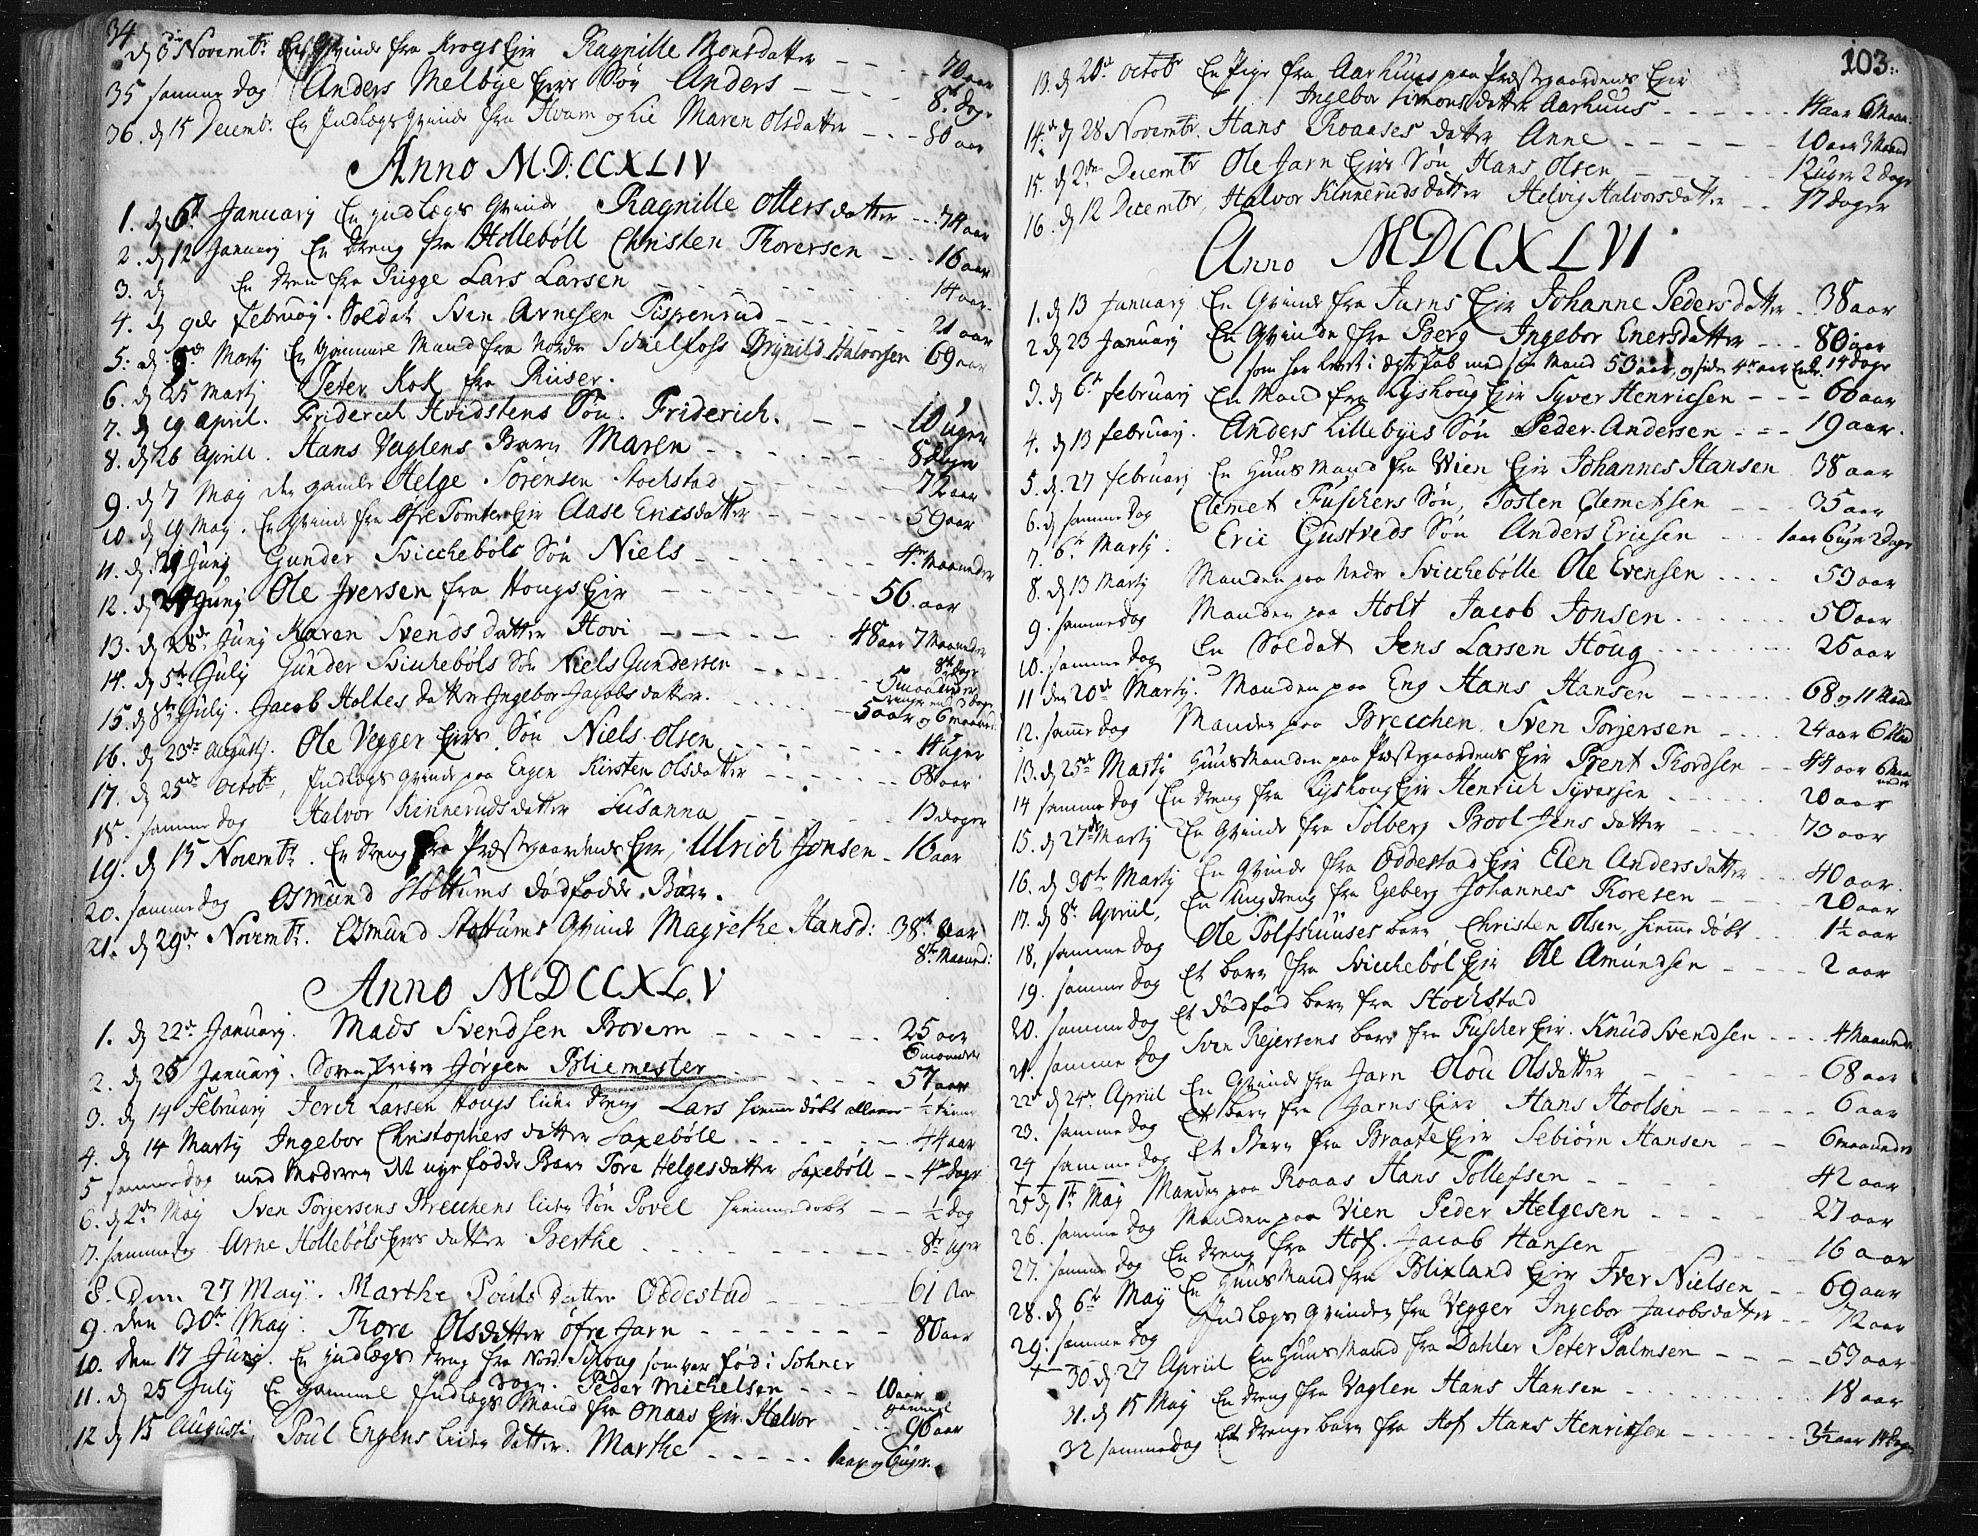 34 d 6 Novembr En Qvinde fra Krogs Eje Ragnille Monsdatter - - - 70 aar
35 samme dag Anders Melbye Ejers Søn Anders - - - 8 dage
36. d 15 Decembr. En Indlægs Qvinde fra Hvam og Lie Maren Olsdatter - - - 80 aar
Anno MD:CCXLIV
1. d 6t January En indlægs Qvinde Ragnille Ottersdatter - - - 74 aar
2. d 12 January En Dreng fra Hollebøll Christen Thoversen - - 16 aar
3. d En Dren fra Rigge Lars Larsen 14 aar.
4. d 9de February. Soldat Sven Arnesen Puspenrud - - - - 21 aar
5. d Marty En Gammel Mand fra Nordr Schielfoss Brynild Halvorsen 69 aar
6. d 25 Marty Peter Kok fra Riiser.
7. d 19 April. Friderich Hvidstens Søn. Friderich. - - - 10 uger
8. d 26 Aprill. Hans Vaglens Barn Maren - - - 8 dage
9. d 7 May den gamle Helge Sørensen Stochstad - - - 72 aar
10. d 19 May. En Qvinde fra Øfre Tomter Eje Aase Ericsdatter - - - 59 aar
11. d. 21 Juny Gunder Svicchebøls Søn Niels - - - 4r Maaneder
12. d 24 Juny Ole Iversen fra Hougs Eje - - - 56. aar
13. d 28de Juny Karen Svends datter Hovi - - - 48 aar 7 Maaneder
14. d 5te July Gunder Svicchebøls Søn Niels Gundersen - - - 5 maaneder 8te dage
15. d 8te July. Jacob Holtes datter Ingebor Jacobs datter. - - - 5 aar og 6 maaned
16. d 23de Augusty. Ole Vegger Ejers Søn Niels Olsen - - - 14 uger
17. d 25de Octobr, Indlægs qvinde paa Engen Kirsten Olsdatter - - - 68 aar
18. samme dag Halvor Kinneruds datter Susanna - - - 13 dager
19. d 15 Novembr. En Dreng fra Præstgaardens Eje, Ulrich Jonsen - 16 aar
20. samme dag Osmund Støttums dødfødde Barn.
21. d 29de Novembr. Osmund Støttums Qvinde Magrethe Hansd: 38te Aar
8te Maaned:
Anno MDCCXLV
1. d 22de January. Mads Svendsen Brovern - - - 25 aar
6 maaneder
2. d 26 January. Sorenskriver Jørgen Bliemester - - - 57 aar
3. d 14 February Jerch Larsen Hougs liden Dreng Lars hiemme døbt allene - ½ time
4. d 14 Marty Ingebor Christophers datter Saxebøle - - - 44 aar
5 samme dag med Moderen det nye fødde Barn Tore Helgesdatter Saxebøll - - 4re dage
6. d 2den May Sven Torjersens Brecchens liden Søn Povel hiemmedøbt - - ½ dag
7. samme dag Arne Hollebøls Ejers datter Berthe - - - 8te uger
8. Den 27 May. Marthe Pouls datter Oddestad - - - 61 Aar
9. den 30te May. Thore Olsdatter øfre Jarn - - - 80 aar
10. den 17 Juny. En Indlægs Dreng fra Nord. Schoug som var fød i Sohner
Sogn. Peder Michelsen - - - 10 aar
11. d 25 July En gammel Indlægs Mand fra Onaas Eje Halvor - - - 96 aar gammel
12 d 15 Augusti, Poul Engens liden datter. Marthe - - - 1 aar og 6 uger.
103.
13. d 20de Octobr En Pige fra Aarhuus paa Præstgaardens Eje
Ingebor Simonsdatter Aarhuus - - - 14 aar 6 Maan:
14. d 28 Novembr. Hans Roaases datter Anne - - - 10 aar 3 Maaned
15. d 2den Decembr Ole Jarn Ejers Søn Hans Olsen - - - 12 uger 2 dage
16. d 12 Decembr, Halvor Kinneruds datter Helvig Halvorsdatter - - 17 dager
Anno MDCCXLVI
1. d 13 January En Qvinde fra Jarns Eje Johanne Pedersdatter - 38 aar
2 d 23 January En Qvinde fra Berg Ingebor Enersdatter - - - 80 aar
som har levet i ægteskab med sin Mand 53 aar, og siden 4re aar Enke 14 dage
3. d 6te February En Mand fra Ryshoug Eje Syver Henricsen - - - 60 aar
4. d 13 February. Anders Lillebyes Søn Peder Andersen - - - 19 aar.
5. d. 27 February En Huusmand fra Wien Eje Johannes Hansen 38 aar
6. d samme dag Clemet Fuschers Søn, Tosten Clemetsen - - 35 aar
7. 6te Marty. Eric Gustveds Søn Anders Ericsen - - - 1 aar 6 uger 2 dage
8. d 13 Marty Manden paa Nedr Svicchebølle Ole Evensen . . . . 53 aar
9. samme dag Manden paa Holt Jacob Jonsen . . . . . 50 aar
10. samme dag En Soldat Jens Larsen Houg . . . . . 25 aar
11 den 20de Marty. Manden paa Eng Hans Hansen - - - 68 og 11 Maaned
12. samme dag Manden paa Brecchen Sven Torjersen - - - 24 aar 6 Maaned
13. d 25de Marty Huusmanden paa Præstgaardens Eje Brent Thordsen - 44 aar 6 Maaneder
14 samme dag En Dreng fra Ryshoug Eje Henrich Syversen . . . . 20 aar
15. d 27de Marty En Qvinde fra Solberg Boel Jens datter - - - 73 aar
16. d 30te Marty En Qvinde fra Oddestad Eje Elen Andersdatter - - - 40 aar.
17. d 8te Apriil, En Ung dreng fra Egeberg Johannes Thoresen - - - 20 aar
18, samme dag Ole Tolfshuuses barn Christen Olsen hiemme døbt - - 1½ aar
19. samme dag Et barn fra Svicchebøl Eje Ole Amundsen - - - 2 aar
20. samme dag Et dødfød barn fra Stochstad
21. samme dag Sven Rejersens barn fra Fuscher Eje. Knud Svendsen - - - 4 Maaneder
22. d 24de Apriil En Qvinde fra Jarn Olou Olsdatter - - - 68 aar
23. samme dag Et barn fra Jarns Eje Hans Hoolsen - - - 6 aar
24 samme dag Et Barn fra Braate Eje Sebiørn Hansen - - 6 maaneder
25 d 1te May Manden paa Roaas Hans Tollefsen - - - 42 aar
26. samme dag Manden paa Vien Peder Helgesen - - - 27 aar
27. samme dag En Dreng fra Hof. Jacob Hansen - - - 16 aar
28. d 6te May En Huusmand fra Blixland Eje Iver Nielsen - - 69 aar
29. samme dag Indlægs Qvinden fra Vegger Ingebor Jacobsdatter - - 72 aar
30. d 27 Apriil En Huusmand fra Dahler Peter Palmsen - - - 53 aar
31. d 15 May En Dreng fra Vaglen Hans Hansen . . . . . 18 aar
32 samme dag Et Drenge barn fra Hof Hans Henricsen - - - 3½ aar 14 dage